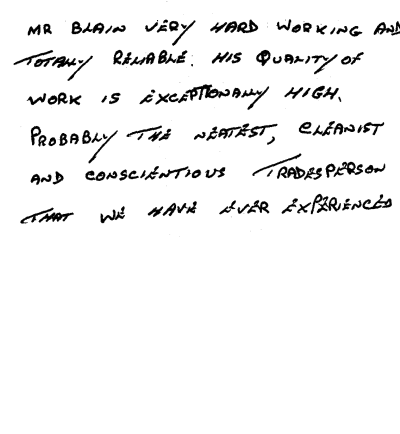 MR BLAIN VERY HARD WORKING AND
TOTALLY RELIABLE. HIS QUALITY OF
WORK IS EXCEPTIONALLY HIGH.
PROBABLY THE NEATEST, CLEANIST
AND CONSCIENTIOUS TRADESPERSON
THAT WE HAVE EVER EXPERIENCED